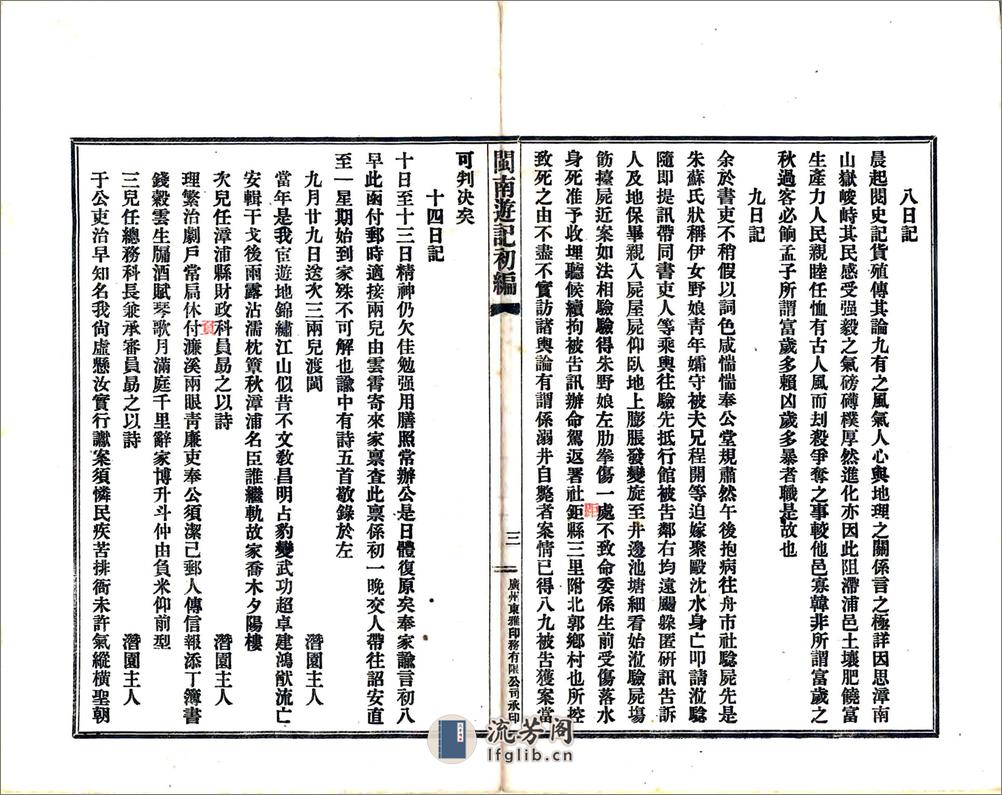 八日記
晨起閱史記貨殖傳其論九有之風氣人心與地理之關係言之極詳因思漳南
山嶽峻峙其民感受强毅之氣磅礴樸厚然進化亦因此阻滯浦邑土壤肥饒富
生產力人民親睦任恤有古人風而刦殺爭奪之事較他邑寡韓非所謂富歲之
秋過客必餉孟子所謂富歲多賴凶歲多暴者職是故也
九日記
余於書吏不稍假以詞色咸惴惴奉公堂規肅然午後抱病往舟市社騐屍先是
朱蘇氏狀稱伊女野娘靑年孀守被夫兄程開等迫嫁聚毆沈水身亡叩請涖騐
隨即提訊帶同書吏人等乘輿往驗先抵行館被吿鄰右均遠颺躱匿研訊吿訴
人及地保畢親入屍屋屍仰臥地上膨脹發變旋至井邊池塘細看始涖驗屍塲
飭擡屍近案如法相驗驗得朱野娘左肋拳傷一處不致命委係生前受傷落水
身死准予收埋聽候續拘被吿訊辦命駕返署社鉅縣三里附北郭鄉村也所控
致死之由不盡不實訪諸輿論有謂係溺井自斃者案情已得八九被吿獲案當
閩南遊記初編
三
廣州東雅印務有限公司承印
可判決矣
十四日記
十日至十三日精神仍欠佳勉强用膳照常辦公是日體復原矣奉家諭言初八
早此函付郵時適接兩兒由雲霄寄來家稟查此稟係初一晚交人帶往詔安直
至一星期始到家殊不可解也諭中有詩五首敬錄於左
九月廿九日送次三兩兒渡閩
潛園主人
當年是我宦遊地錦繡江山似昔不文敎昌明占豹變武功超卓建鴻猷流亡
安輯干戈後雨露沾濡枕簟秋漳浦名臣誰繼軌故家喬木夕陽樓
次兒任漳浦縣財政科員勗之以詩
潛園主人
理繁治劇戶常扃休付濂溪兩眼靑廉吏奉公須潔己郵人傳信報添丁簿書
錢穀雲生牖酒賦琴歌月滿庭千里辭家博升斗仲由負米仰前型
三兒任總務科長兼承審員勗之以詩
潛園主人
于公吏治早知名我尙虛懸汝實行讞案須憐民疾苦排衙未許氣縱橫聖朝
流芳阁
lfglib.cn